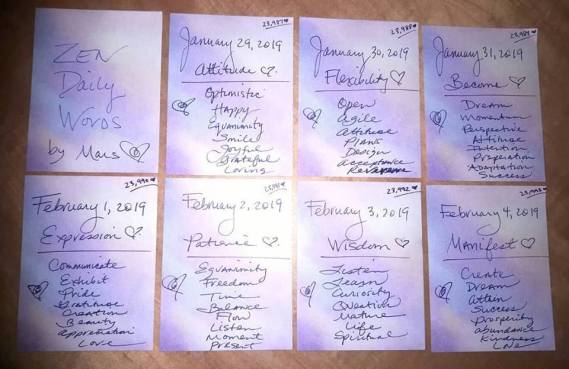 ZEN
Daily
Words
by Mars
23,987
January 29, 2019
Attitude
Optimistic
Happy
Equanimity
Smile
Joyful
Grateful
Loving
23,988
January 30, 2019
Flexibility
Open
Agile
Attitude
Plans
Design
Acceptance
23,989
January 31, 2019
Become
Dream
Momentum
Perspective
Attitude
Intention
Preparation
Adaptation
Success
23,990
February 1, 2019
Expression
Communicate
Exhibit
Pride
Gratitude
Creation
Beauty
Appreciation
Love
23,991
February 2, 2019
Patience
Equanimity
Freedom
Time
Balance
Flow
Listen
Moment
Present
23,992
February 3, 2019
Wisdom
Listen
Learn
Curiosity
Question
Mature
Life
Spiritual
23,993
February 4, 2019
Manifest
Create
Dream
Success
Prosperity
Abundance
Kindness
Love